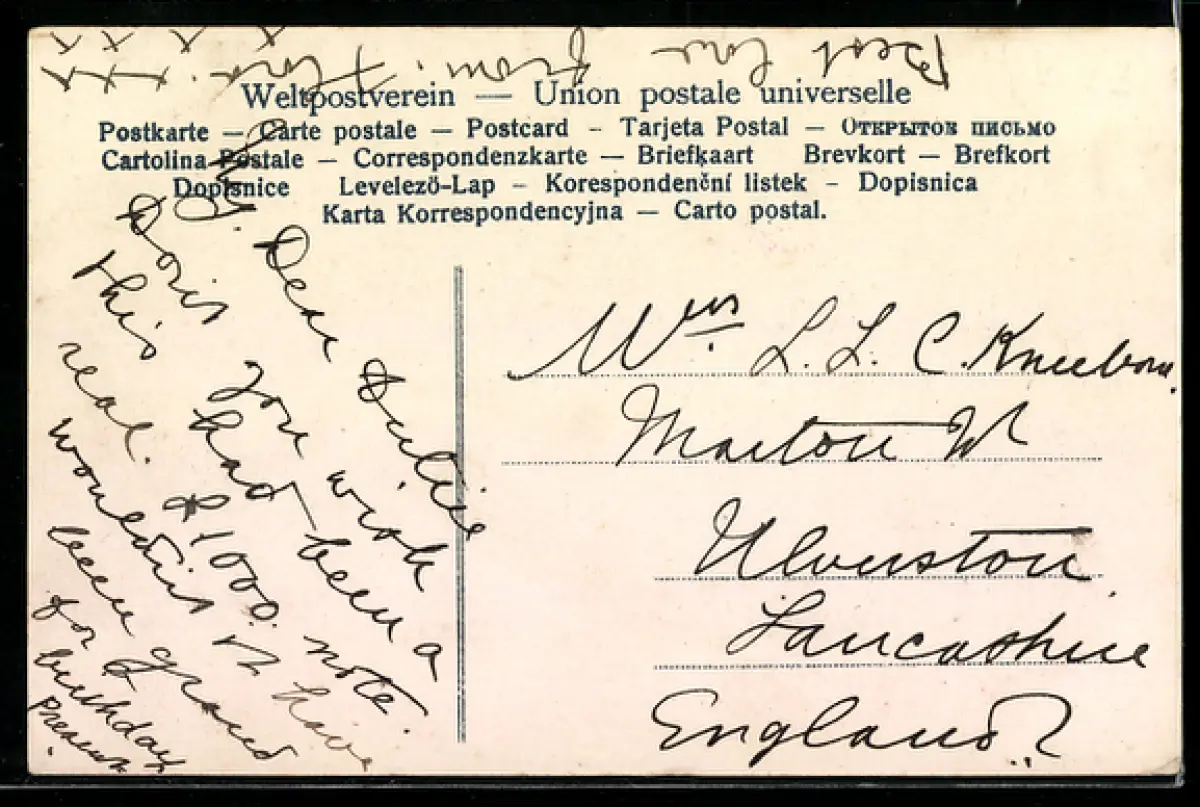 Best love from. Flora. x x x x
x x x x
Weltpostverein — Union postale universelle
Postkarte — Carte postale — Postcard - Tarjeta Postal — Открытое письмо
Cartolina Postale — Correspondenzkarte — Briefkaart Brevkort — Brefkort
Dopisnice Levelező-Lap - Korespondenční listek - Dopisnica
Karta Korrespondencyjna — Carto postal.
Dear
Doris you wish
this had been a
real. £1000 note.
wouldn't it have
been grand
for birthday
Present.
Mrs. L. L. C. Kneebone.
Marton W
Ulverston
Lancashire
England